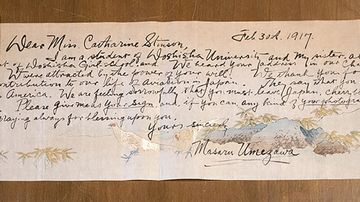 Feb. 3rd, 1917.
Dear Miss. Catharine Stinson,
I am a student of Doshisha University and my sister, a
of Doshisha Girl's school, and We heard your address in our cha
We were attracted by the power of your will! We thank you for
contribution to our life & aviation in Japan. The say that you
America. We are feeling sorrowfully that you must leave Japan, cherry
Please give many your sign and, if you can any kind of your photograph
Praying always for blessing upon you.
Yours sincerely
Masaru Umezawa